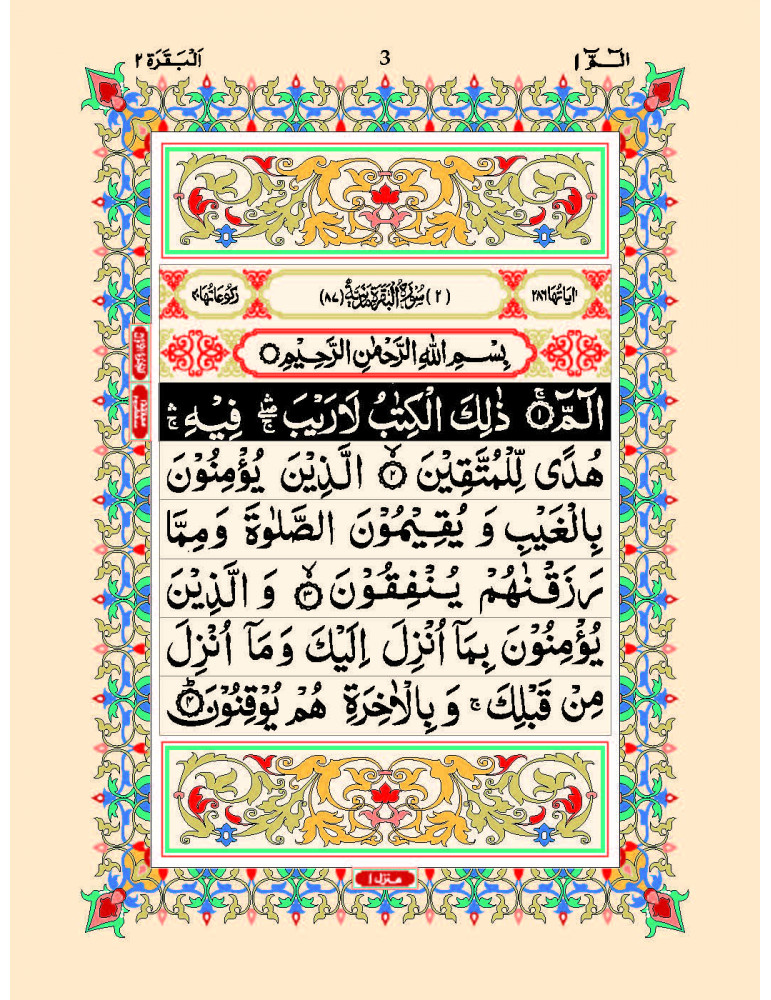 الٓمّٓ ۱
3
اَلْبَقَرَة ۲
اٰیَاتُهَا ۲۸۶
(۲) سُوْرَةُ الْبَقَرَةِ مَدَنِیَّةٌ (۸۷)
رُكُوْعَاتُهَا ۴۰
بِسْمِ اللهِ الرَّحْمٰنِ الرَّحِیْمِ
الٓمّٓ ۚ ۱ ذٰلِكَ الْكِتٰبُ لَا رَیْبَ ۛۖۚ فِیْهِ ۛۚ
هُدًی لِّلْمُتَّقِیْنَ ۙ ۲ الَّذِیْنَ یُؤْمِنُوْنَ
بِالْغَیْبِ وَ یُقِیْمُوْنَ الصَّلٰوةَ وَمِمَّا
رَزَقْنٰهُمْ یُنْفِقُوْنَ ۙ ۳ وَ الَّذِیْنَ
یُؤْمِنُوْنَ بِمَاۤ اُنْزِلَ اِلَیْكَ وَمَاۤ اُنْزِلَ
مِنْ قَبْلِكَ ۚ وَ بِالْاٰخِرَةِ هُمْ یُوْقِنُوْنَ ؕ ۴
منزل ۱